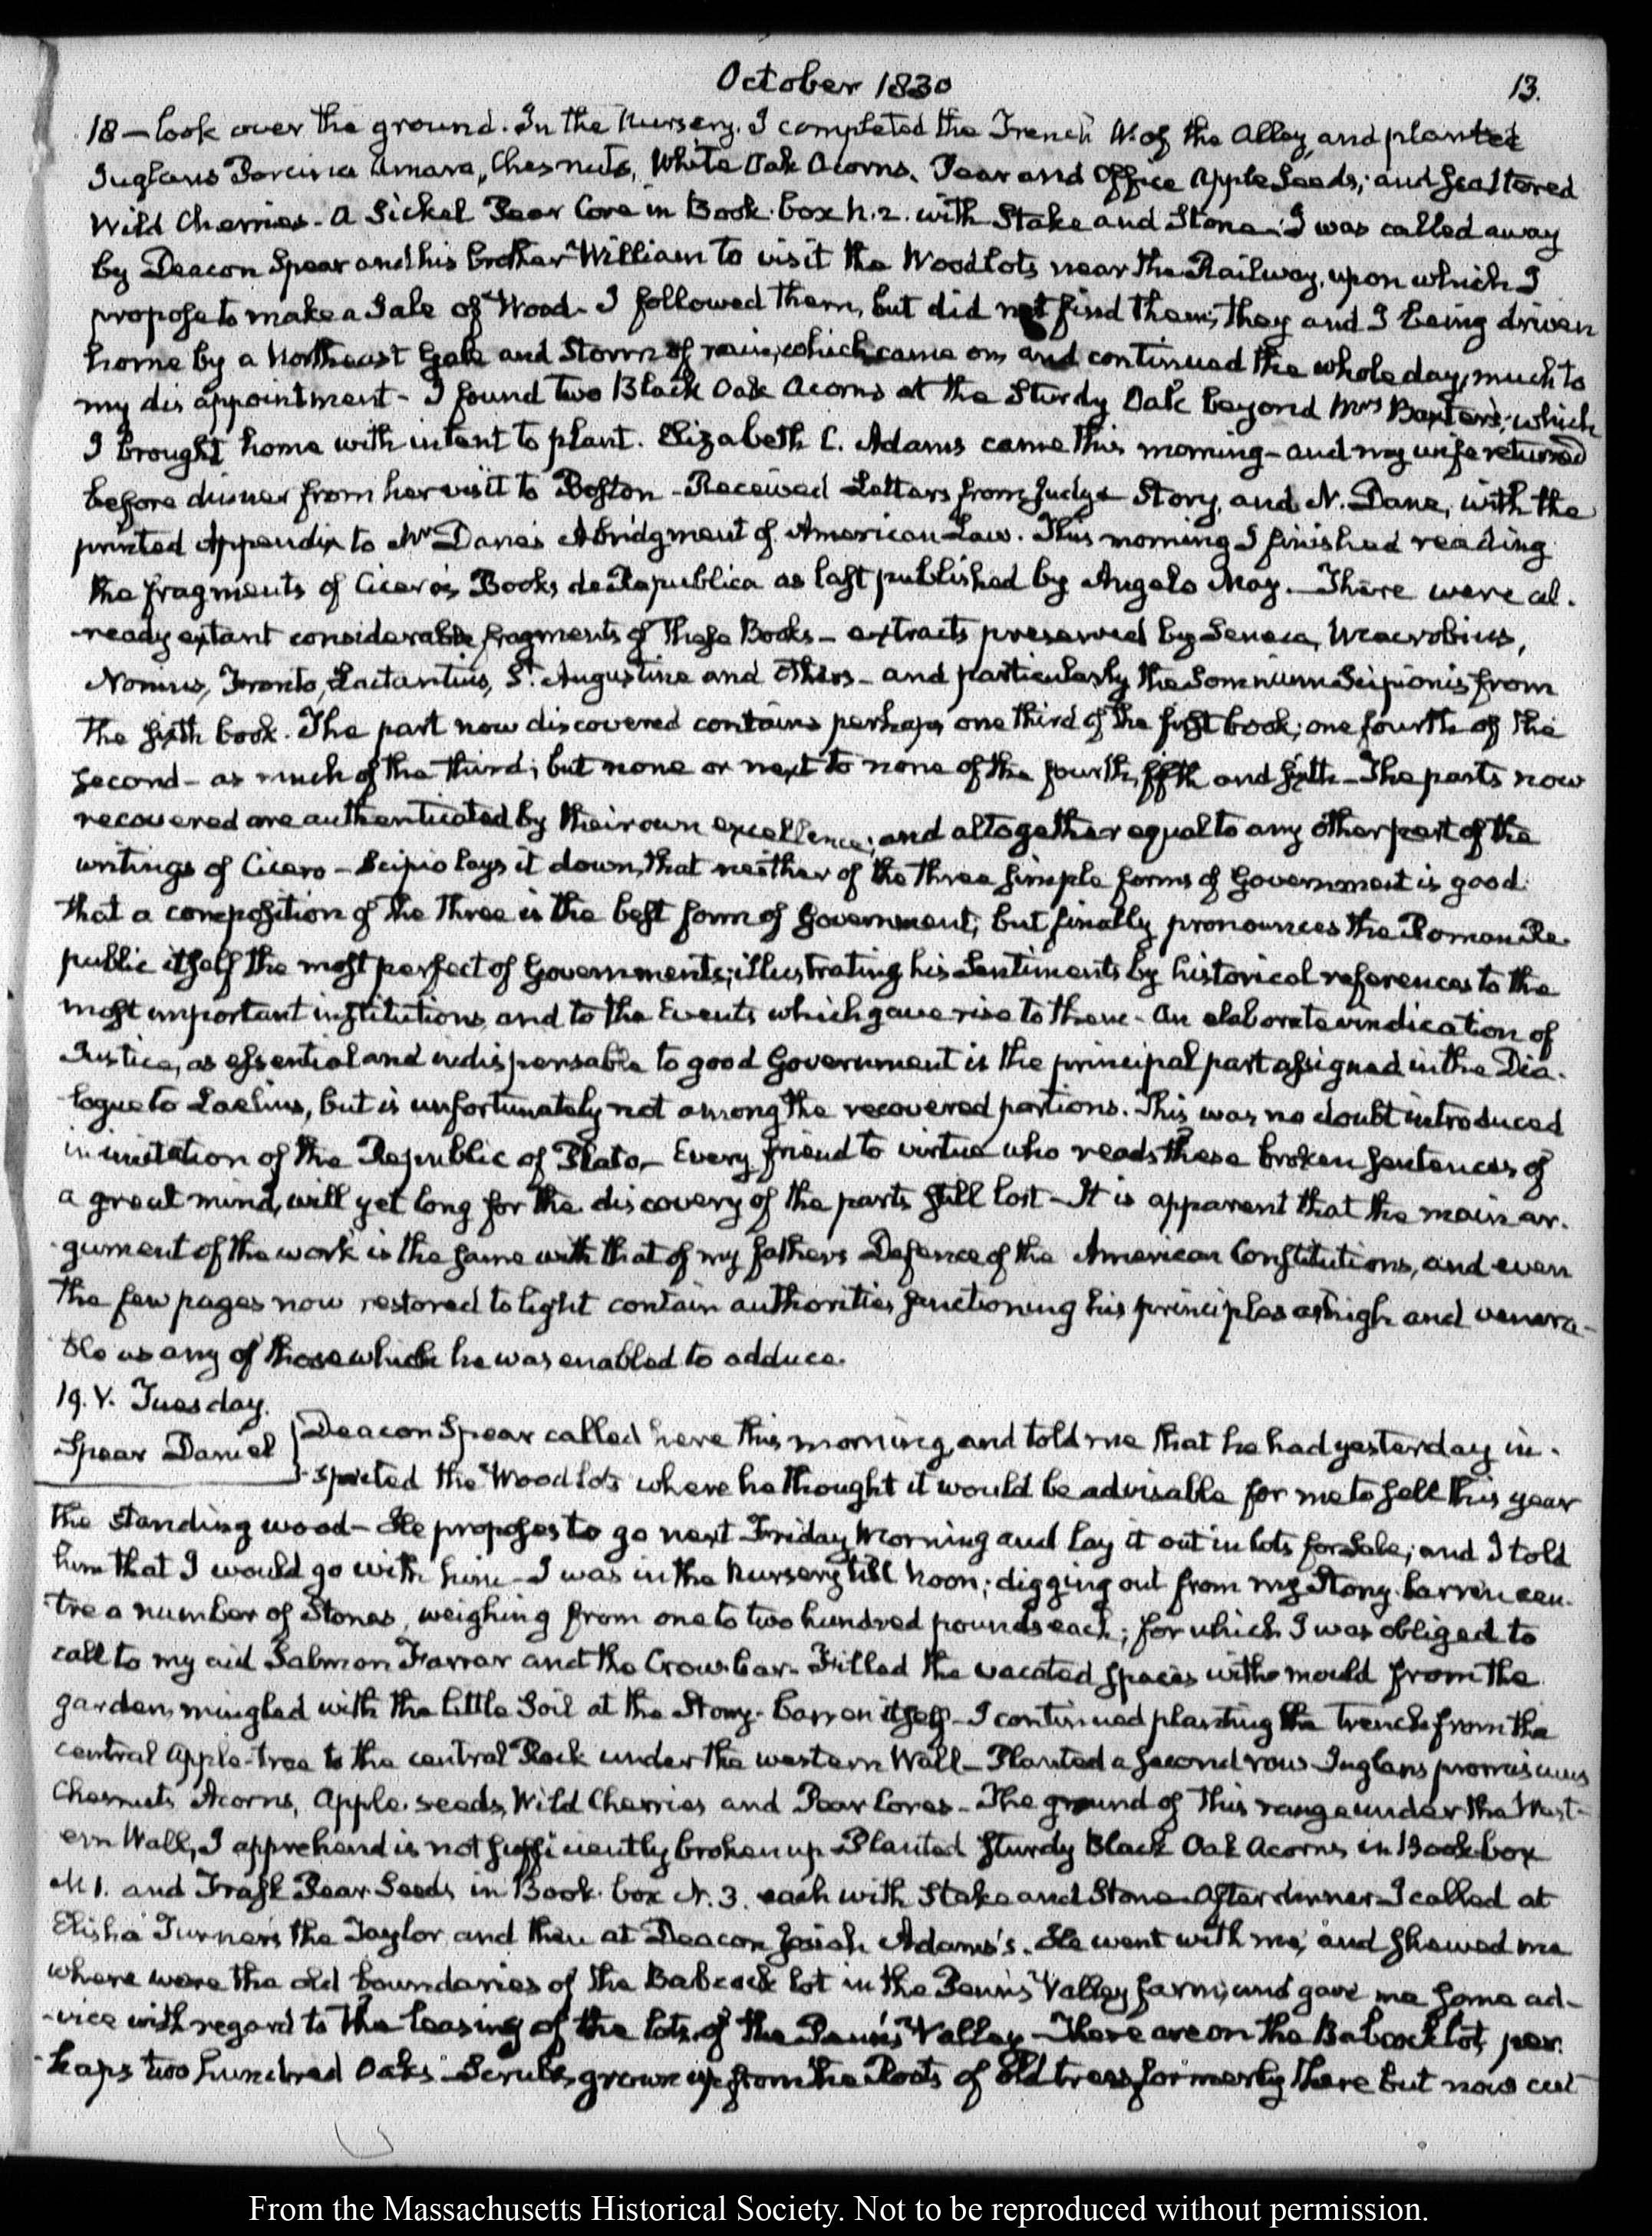 October 1830
13.
18 — look over the ground. In the Nursery. I completed the Trench N. of the Alley, and planted
Juglans Porcina Amara, Chesnuts, White Oak Acorns, Pear and Office Apple Seeds; and scattered
Wild Cherries - A Sickel Pear Core in Book-box N. 2. with Stake and Stone. I was called away
by Deacon Spear and his brother William to visit the Woodlots near the Railway, upon which I
propose to make a Sale of Wood - I followed them, but did not find them; they and I being driven
home by a Northeast Gale and Storm of rain, which came on, and continued the whole day, much to
my disappointment - I found two Black Oak Acorns at the Sturdy Oak beyond Mrs Baxter's; which
I brought home with intent to plant. Elizabeth C. Adams came this morning - and my wife returned
before dinner from her visit to Boston - Received Letters from Judge Story, and N. Dane, with the
printed Appendix to Mr Dane's Abridgment of American Law. This morning I finished reading
the fragments of Cicero's Books de Republica as last published by Angelo May. - There were al-
-ready extant considerable fragments of these Books - extracts preserved by Seneca, Macrobius,
Nonius, Fronto, Lactantius, St. Augustine and others - and particularly the Somnium Scipionis from
the sixth book. The part now discovered contains perhaps one third of the first book; one fourth of the
second - as much of the third; but none or next to none of the fourth, fifth and sixth - The parts now
recovered are authenticated by their own excellence; and altogether equal to any other part of the
writings of Cicero - Scipio lays it down, that neither of the three simple forms of Government is good
that a composition of the three is the best form of Government; but finally pronounces the Roman Re-
public itself the most perfect of Governments; illustrating his Sentiments by historical references to the
most important institutions, and to the Events which gave rise to them - An elaborate vindication of
Justice, as essential and indispensable to good Government is the principal part assigned in the Dia-
logue to Laelius, but is unfortunately not among the recovered portions. This was no doubt introduced
in imitation of the Republic of Plato - Every friend to virtue who reads these broken sentences of
a great mind, will yet long for the discovery of the parts still lost - It is apparent that the main ar-
-gument of the work is the same with that of my father's Defence of the American Constitutions, and even
the few pages now restored to light contain authorities sanctioning his principles as high and venera-
ble as any of those which he was enabled to adduce.
19. V. Tuesday.
Spear Daniel
Deacon Spear called here this morning, and told me that he had yesterday in-
-spected the Wood lots where he thought it would be advisable for me to sell this year
the standing wood - He proposes to go next Friday Morning and lay it out in lots for Sale; and I told
him that I would go with him - I was in the Nursery till Noon; digging out from my Stony-barren cen-
-tre a number of Stones, weighing from one to two hundred pounds each; for which I was obliged to
call to my aid Salmon Farrar and the Crow-bar - Filled the vacated spaces with mould from the
garden, mingled with the little Soil at the Stony-barren itself - I continued planting the trench from the
central Apple-tree to the central Rock under the western Wall - Planted a second row Juglans promiscuus
Chesnuts, Acorns, Apple-seeds, Wild Cherries and Pear Cores - The ground of this range under the West-
ern Wall, I apprehend is not sufficiently broken up. Planted Sturdy Black Oak Acorns in Book-box
N 1. and Trask Pear Seeds in Book-box N. 3. each with Stake and Stone - After dinner I called at
Elisha Turner's the Taylor, and then at Deacon Josiah Adams's. He went with me, and shewed me
where were the old boundaries of the Babcock lot in the Penn's Valley farm; and gave me some ad-
-vice with regard to the leasing of the lots of the Penn's Valley - There are on the Babcock lot, per-
-haps two hundred Oaks - Scrubs, grown up from the Roots of Old trees formerly there but now cut
From the Massachusetts Historical Society. Not to be reproduced without permission.